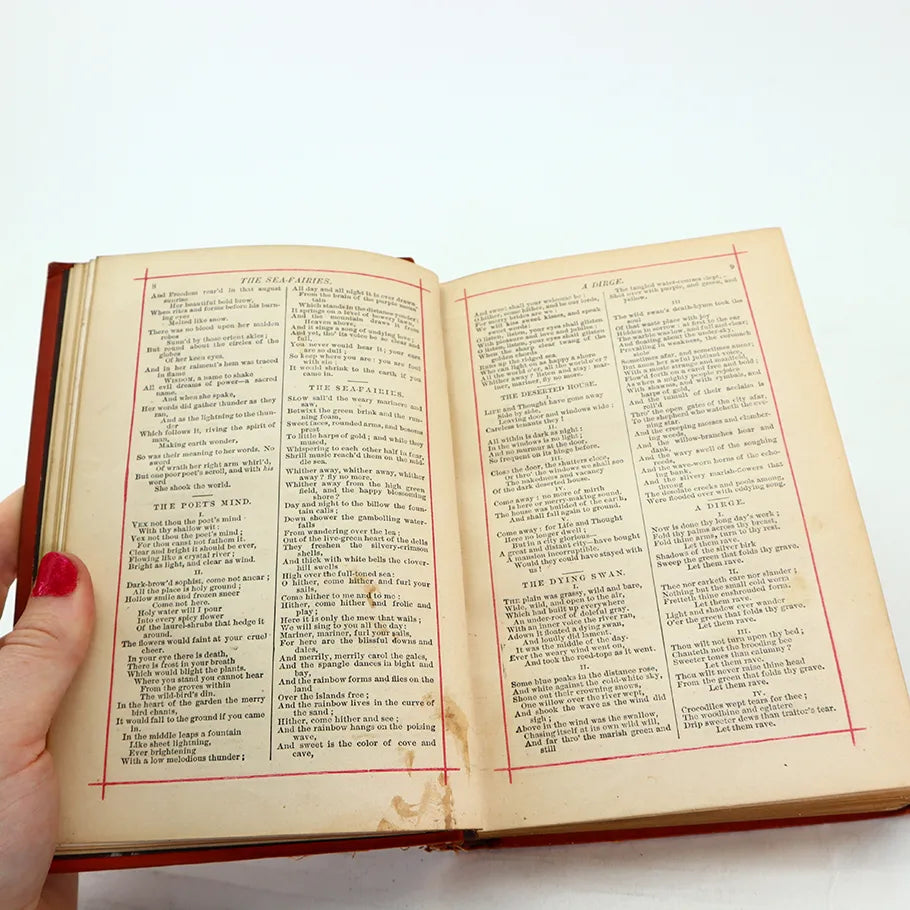 8
THE SEA-FAIRIES.
And Freedom rear'd in that august
sunrise
Her beautiful bold brow,
When rites and forms before his burn-
ing eyes
Melted like snow.
There was no blood upon her maiden
robes
Sunn'd by those orient skies;
But round about the circles of the
globes
Of her keen eyes,
And in her raiment's hem was traced
in flame
WISDOM, a name to shake
All evil dreams of power—a sacred
name.
And when she spake,
Her words did gather thunder as they
ran,
And as the lightning to the thun-
der
Which follows it, riving the spirit of
man,
Making earth wonder,
So was their meaning to her words. No
sword
Of wrath her right arm whirl'd,
But one poor poet's scroll, and with his
word
She shook the world.
THE POETS MIND.
I.
VEX not thou the poet's mind
With thy shallow wit:
Vex not thou the poet's mind;
For thou canst not fathom it.
Clear and bright it should be ever,
Flowing like a crystal river;
Bright as light, and clear as wind.
II.
Dark-brow'd sophist, come not anear;
All the place is holy ground;
Hollow smile and frozen sneer
Come not here.
Holy water will I pour
Into every spicy flower
Of the laurel-shrubs that hedge it
around.
The flowers would faint at your cruel
cheer.
In your eye there is death,
There is frost in your breath
Which would blight the plants.
Where you stand you cannot hear
From the groves within
The wild-bird's din.
In the heart of the garden the merry
bird chants,
It would fall to the ground if you came
in.
In the middle leaps a fountain
Like sheet lightning,
Ever brightening
With a low melodious thunder;
All day and all night it is ever drawn
From the brain of the purple moun-
tain
Which stands in the distance yonder:
It springs on a level of bowery lawn,
And the mountain draws it from
Heaven above,
And it sings a song of undying love;
And yet, tho' its voice be so clear and
full,
You never would hear it; your ears
are so dull;
So keep where you are: you are foul
with sin;
It would shrink to the earth if you
came in.
THE SEA-FAIRIES.
SLOW sail'd the weary mariners and
saw,
Betwixt the green brink and the run-
ning foam,
Sweet faces, rounded arms, and bosoms
prest
To little harps of gold; and while they
mused,
Whispering to each other half in fear,
Shrill music reach'd them on the mid-
dle sea.
Whither away, whither away, whither
away? fly no more.
Whither away from the high green
field, and the happy blossoming
shore?
Day and night to the billow the foun-
tain calls;
Down shower the gambolling water-
falls
From wandering over the lea:
Out of the live-green heart of the dells
They freshen the silvery-crimson
shells,
And thick with white bells the clover-
hill swells
High over the full-toned sea:
O hither, come hither and furl your
sails,
Come hither to me and to me:
Hither, come hither and frolic and
play;
Here it is only the mew that wails;
We will sing to you all the day:
Mariner, mariner, furl your sails,
For here are the blissful downs and
dales,
And merrily, merrily carol the gales,
And the spangle dances in bight and
bay,
And the rainbow forms and flies on the
land
Over the islands free;
And the rainbow lives in the curve of
the sand;
Hither, come hither and see;
And the rainbow hangs on the poising
wave,
And sweet is the color of cove and
cave,
A DIRGE.
9
And sweet shall your welcome be:
O hither, come hither, and be our lords,
For merry brides are we:
We will kiss sweet kisses, and speak
sweet words:
O listen, listen, your eyes shall glisten
With pleasure and love and jubilee:
O listen, listen, your eyes shall glisten
When the sharp clear twang of the
golden chords
Runs up the ridged sea.
Who can light on as happy a shore
All the world o'er, all the world o'er?
Whither away? listen and stay: mar-
iner, mariner, fly no more.
THE DESERTED HOUSE.
I.
LIFE and Thought have gone away
Side by side,
Leaving door and windows wide:
Careless tenants they!
II.
All within is dark as night:
In the windows is no light;
And no murmur at the door,
So frequent on its hinge before.
III.
Close the door, the shutters close,
Or thro' the windows we shall see
The nakedness and vacancy
Of the dark deserted house.
IV.
Come away: no more of mirth
Is here or merry-making sound.
The house was builded of the earth,
And shall fall again to ground.
V.
Come away: for Life and Thought
Here no longer dwell;
But in a city glorious—
A great and distant city—have bought
A mansion incorruptible.
Would they could have stayed with
us!
THE DYING SWAN.
I.
THE plain was grassy, wild and bare,
Wide, wild, and open to the air,
Which had built up everywhere
An under-roof of doleful gray.
With an inner voice the river ran,
Adown it floated a dying swan,
And loudly did lament.
It was the middle of the day.
Ever the weary wind went on,
And took the reed-tops as it went.
II.
Some blue peaks in the distance rose,
And white against the cold-white sky,
Shone out their crowning snows.
One willow over the river wept,
And shook the wave as the wind did
sigh;
Above in the wind was the swallow,
Chasing itself at its own wild will,
And far thro' the marish green and
still
The tangled water-courses slept,
Shot over with purple, and green, and
yellow.
III.
The wild swan's death-hymn took the
soul
Of that waste place with joy
Hidden in sorrow: at first to the ear
The warble was low, and full and clear;
And floating about the under-sky,
Prevailing in weakness, the coronach
stole
Sometimes afar, and sometimes anear;
But anon her awful jubilant voice,
With a music strange and manifold,
Flow'd forth on a carol free and bold;
As when a mighty people rejoice
With shawms, and with cymbals, and
harps of gold,
And the tumult of their acclaim is
roll'd
Thro' the open gates of the city afar,
To the shepherd who watcheth the eve-
ning star.
And the creeping mosses and clamber-
ing weeds,
And the willow-branches hoar and
dank,
And the wavy swell of the soughing
reeds,
And the wave-worn horns of the echo-
ing bank,
And the silvery marish-flowers that
throng
The desolate creeks and pools among,
Were flooded over with eddying song.
A DIRGE.
I.
Now is done thy long day's work;
Fold thy palms across thy breast,
Fold thine arms, turn to thy rest.
Let them rave.
Shadows of the silver birk
Sweep the green that folds thy grave.
Let them rave.
II.
Thee nor carketh care nor slander;
Nothing but the small cold worm
Fretteth thine enshrouded form.
Let them rave.
Light and shadow ever wander
O'er the green that folds thy grave.
Let them rave.
III.
Thou wilt not turn upon thy bed;
Chanteth not the brooding bee
Sweeter tones than calumny?
Let them rave.
Thou wilt never raise thine head
From the green that folds thy grave.
Let them rave.
IV.
Crocodiles wept tears for thee;
The woodbine and eglatere
Drip sweeter dews than traitor's tear.
Let them rave.